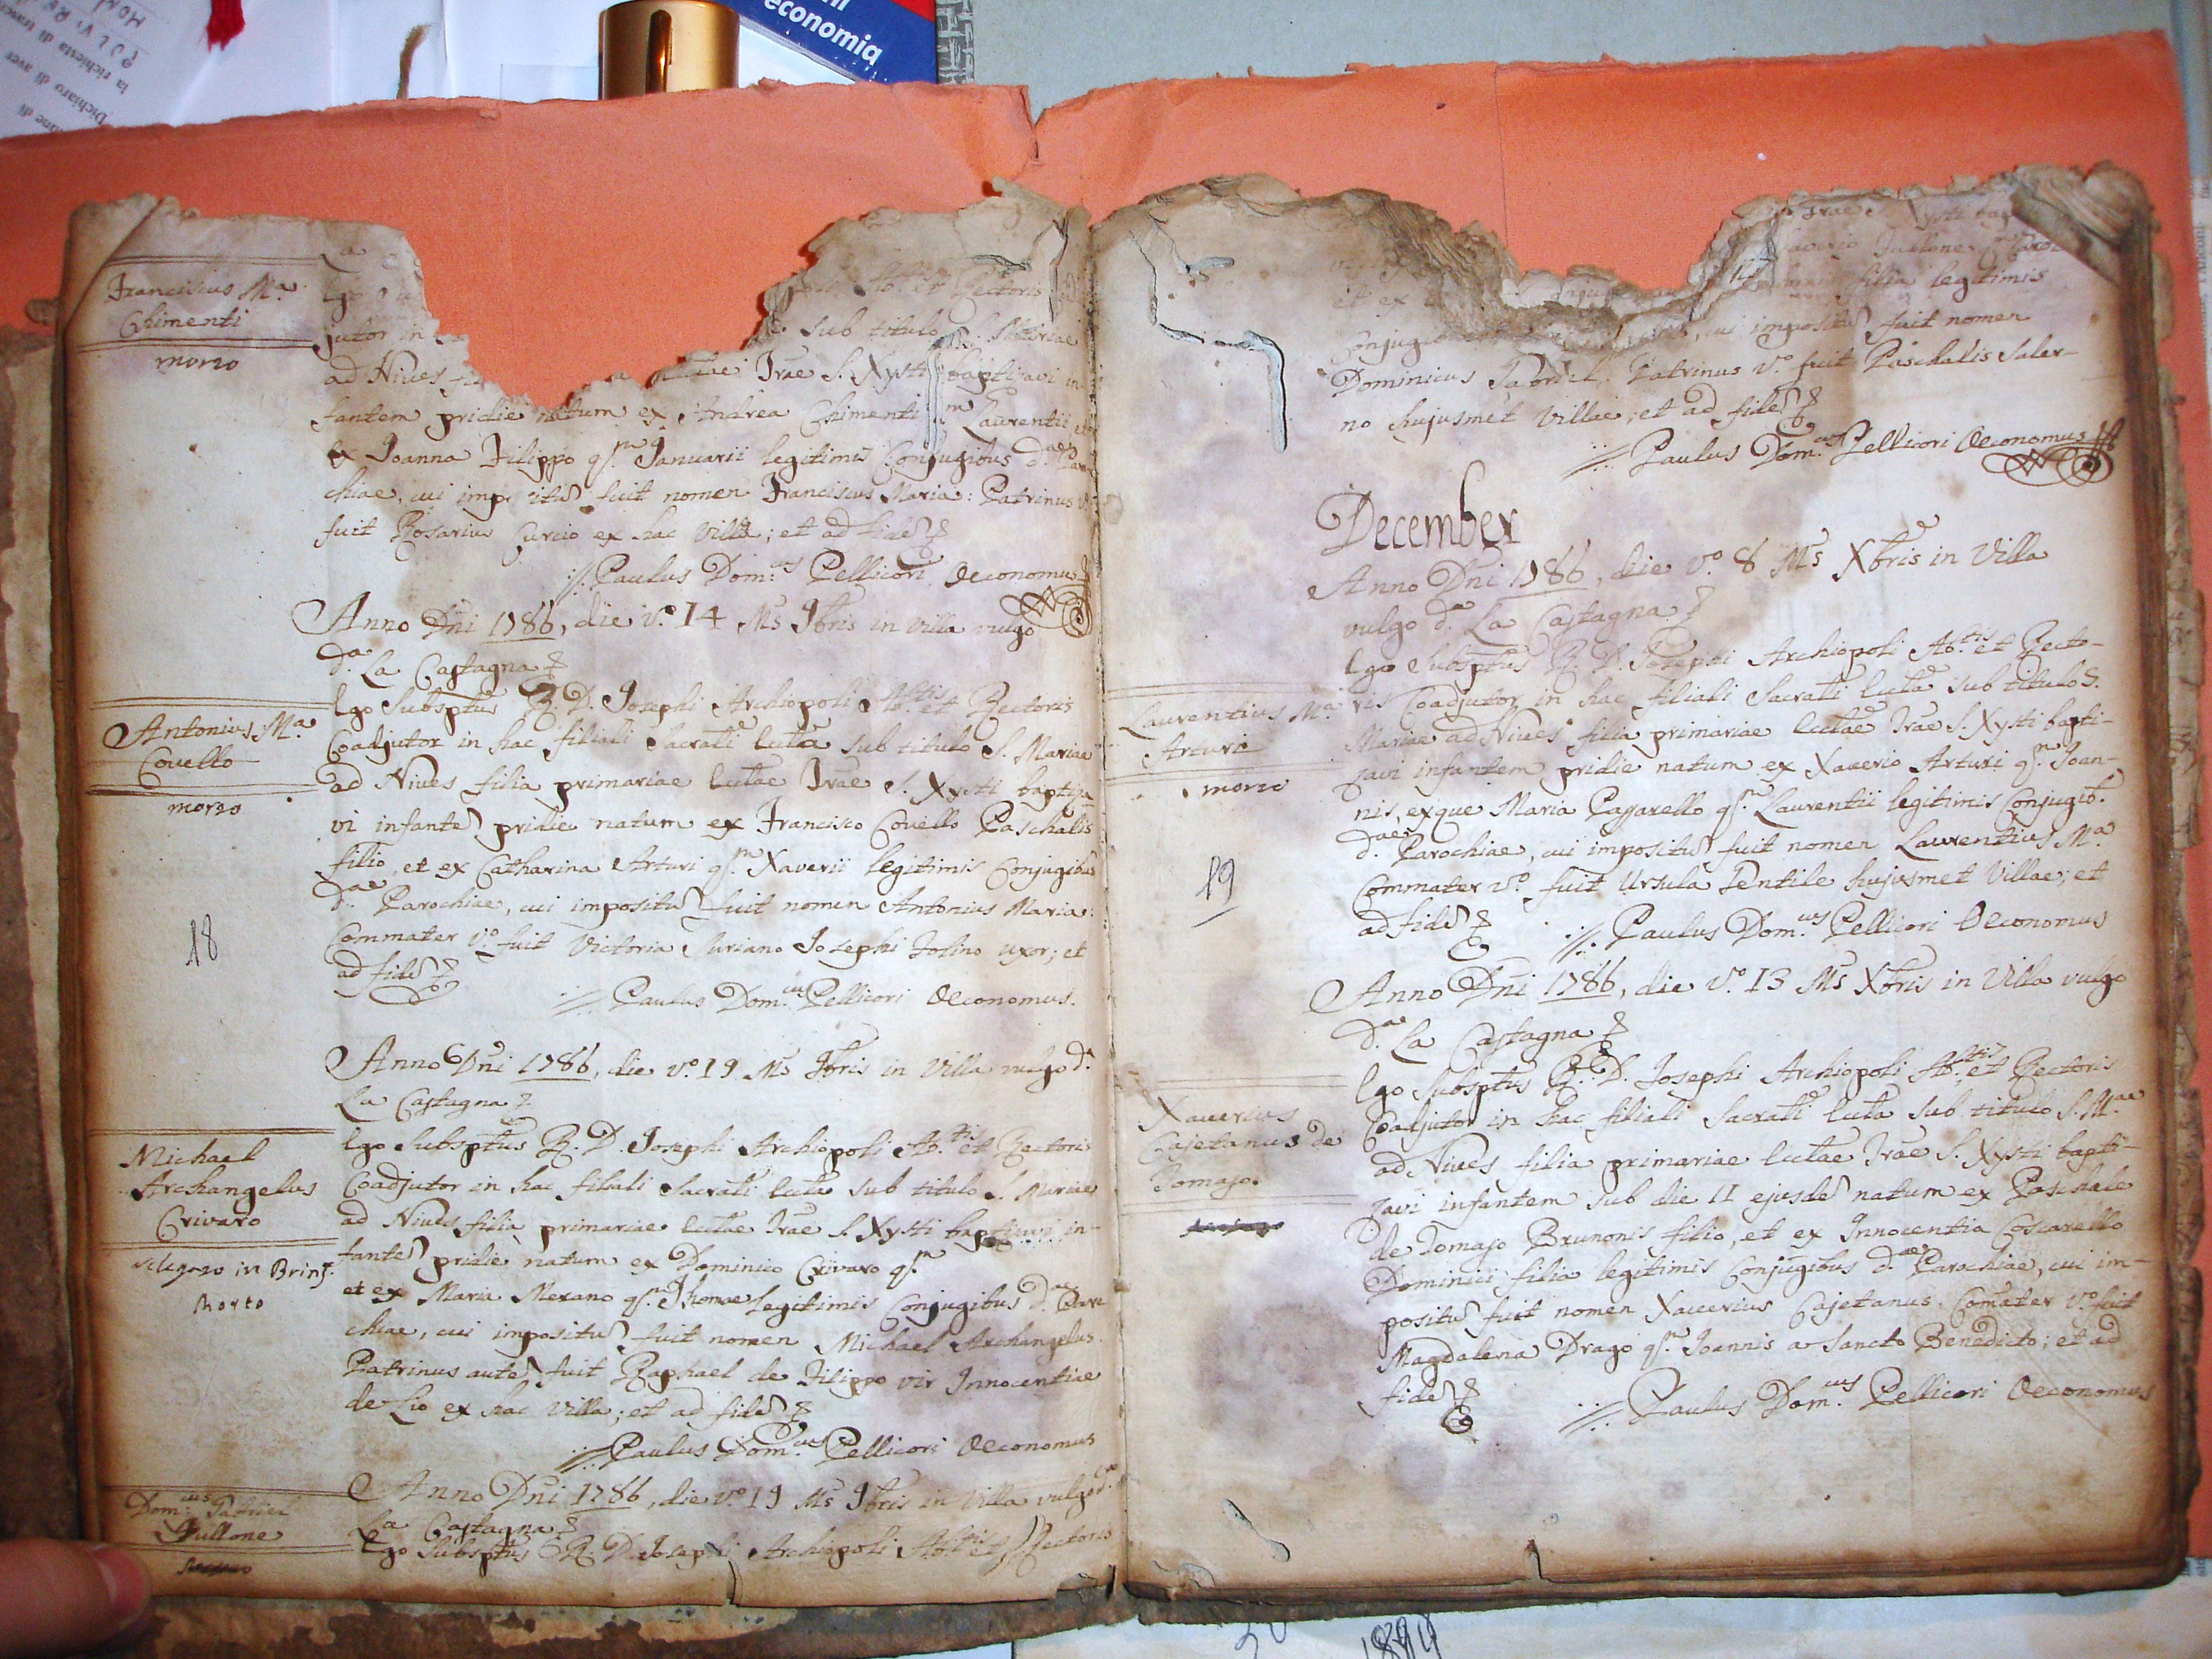 economia
la richiesta di
Dichiaro di aver
Franciscus M.a
Chimenti
morto
La
Ego
jutor in
Ab.tis et Rectoris
sub titulo S. Mariae
ad Nives Irae S. Xysti baptizavi in
fantem pridie natum ex Andrea Chimenti qm Laurentii et
ex Joanna Filippo qm Januarii legitimis Conjugibus d.ae Paro
chiae, cui impositũ fuit nomen Franciscus Maria: Patrinus v.o
fuit Rosarius Curcio ex hac Villa; et ad fidẽ
Paulus Dom.cus Pellicori Oeconomus
Anno Dñi 1786, die v.o 14 Ms 9bris in Villa vulgo
d.a La Castagna
Antonius M.a
Covello
morto
Ego Subsptus R. D. Josephi Archiopoli Ab.tis et Rectoris
Coadjutor in hac filiali Sacrati Ecclã sub titulo S. Mariae
ad Nives filia primariae Ecclae Irae S. Xysti baptiza
vi infantẽ pridie natum ex Francisco Covello Paschalis
filio, et ex Catharina Arturi qm Xaverii legitimis Conjugibus
d.ae Parochiae, cui impositũ fuit nomen Antonius Maria:
Commater v.o fuit Victoria Suriano Josephi Iosino uxor; et
ad fidẽ
18
Paulus Dom.cus Pellicori Oeconomus.
Anno Dñi 1786, die v.o 19 Ms 9bris in Villa vulgo d.a
La Castagna
Michael
Archangelus
Crivaro
morto
Ego Subsptus R. D. Josephi Archiopoli Ab.tis et Rectoris
Coadjutor in hac filiali Sacrati Ecclã sub titulo S. Mariae
ad Nives filia primariae Ecclae Irae S. Xysti baptizavi in-
fantẽ pridie natum ex Dominico Crivaro qm
et ex Maria Merano qm Thomae legitimis Conjugibus d.ae Paro
chiae, cui impositũ fuit nomen Michael Archangelus.
Patrinus autẽ fuit Raphael de Filippo vir Innocentiae
de Lio ex hac Villa; et ad fidẽ
Paulus Dom.cus Pellicori Oeconomus
Anno Dñi 1786, die v.o 19 Ms 9bris in Villa vulgo d.a
La Castagna
Dom.cus Gabriel
Gullone
Ego Subsptus R. D. Josephi Archiopoli Ab.tis et Rectoris
Irae S. Xysti bap
averio Gullone
filia legitimis
et ex
Conjugibus cui impositũ fuit nomen
Dominicus Gabriel: Patrinus v.o fuit Paschalis Saler-
no hujusmet Villae; et ad fidẽ
Paulus Dom.cus Pellicori Oeconomus
December
Anno Dñi 1786, die v.o 8 Ms Xbris in Villa
vulgo d.a La Castagna
Laurentius M.a
Arturi
morto
19
Ego Subsptus R. D. Josephi Archiopoli Ab.tis et Recto-
ris Coadjutor in hac filiali Sacrati Ecclã sub titulo S.
Mariae ad Nives filia primariae Ecclae Irae S. Xysti bapti-
zavi infantem pridie natum ex Xaverio Arturi qm Joan-
nis, exque Maria Passarello qm Laurentii legitimis Conjugib.
d.ae Parochiae, cui impositũ fuit nomen Laurentius M.a
Commater v.o fuit Ursula Gentile hujusmet Villae; et
ad fidẽ
Paulus Dom.cus Pellicori Oeconomus
Anno Dñi 1786, die v.o 13 Ms Xbris in Villa vulgo
d.a La Castagna
Xaverius
Cajetanus de
Tomaso.
Ego Subsptus R. D. Josephi Archiopoli Ab.tis et Rectoris
Coadjutor in hac filiali Sacrati Ecclã sub titulo S. M.ae
ad Nives filia primariae Ecclae Irae S. Xysti bapti-
zavi infantem sub die 11 ejusdẽ natum ex Paschale
de Tomaso Brunonis filio, et ex Innocentia Coscarello
Dominici filia legitimis Conjugibus d.ae Parochiae, cui im-
positũ fuit nomen Xaverius Cajetanus. Com̃ater v.o fuit
Magdalena Drago qm Joannis a Sancto Benedicto; et ad
fidẽ
Paulus Dom.cus Pellicori Oeconomus